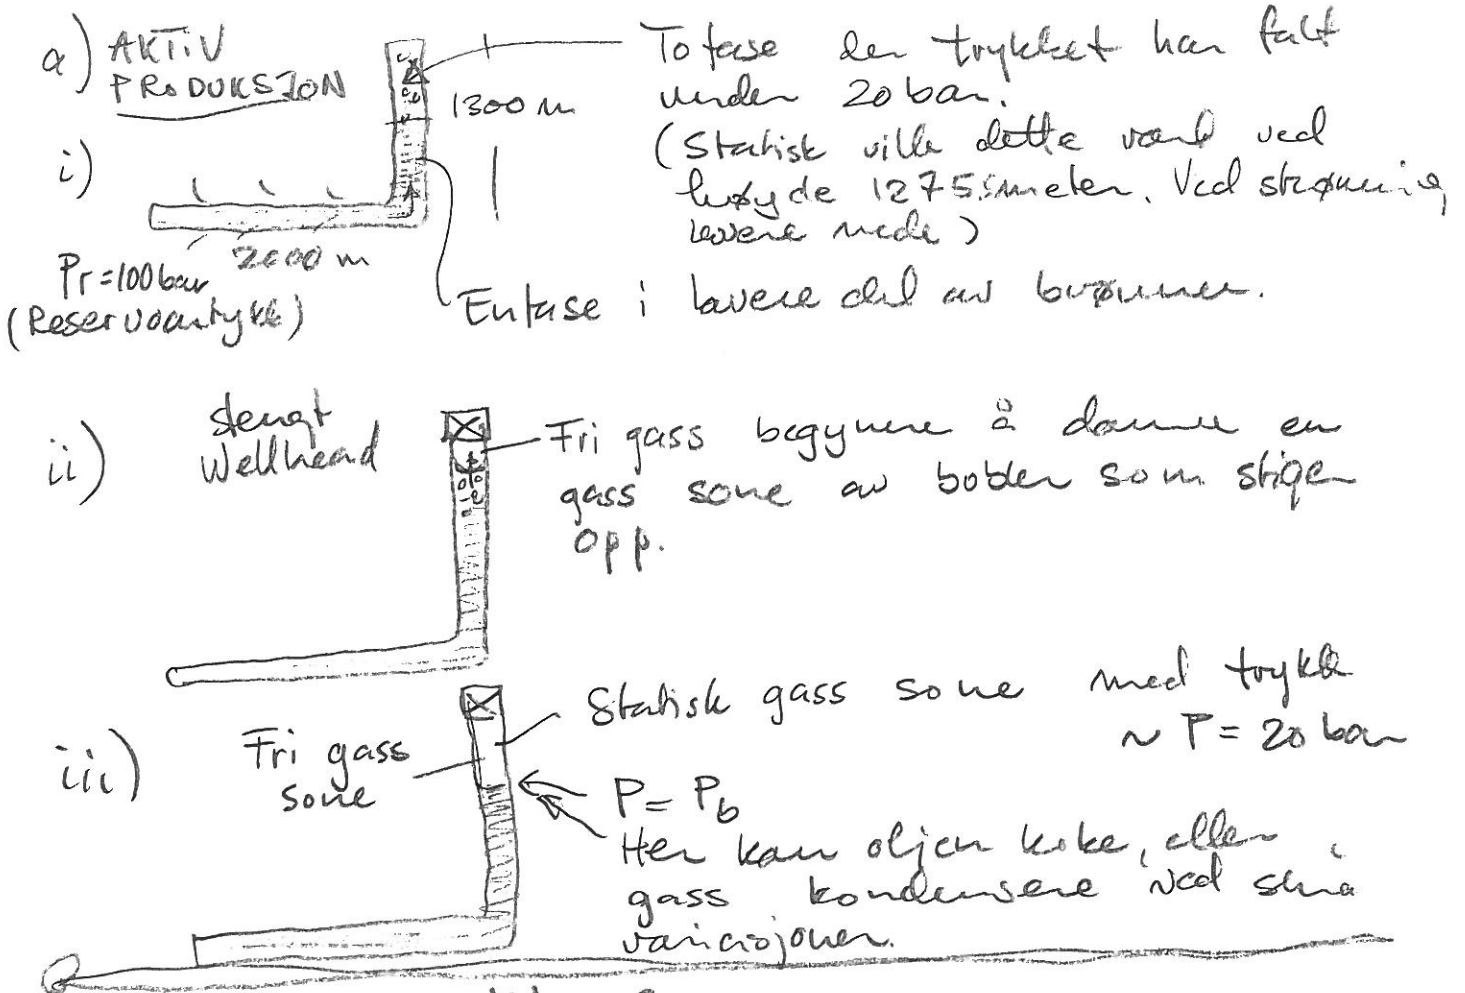 a) AKTiV
PRODUKSJON
i)
1300 m
To fase der trykket har falt
under 20 bar.
(Statisk ville dette vært ved
høyde 1275 meter. Ved strømning
lavere nede)
2000 m
Pr = 100 bar
(Reservoartrykk)
Enfase i lavere del av brønnen.
ii)
stengt
Wellhead
Fri gass begynner å danne en
gass sone av bobler som stiger
opp.
iii)
Fri gass
sone
Statisk gass sone med trykk
~ P = 20 bar
P = Pb
Her kan oljen koke, eller
gass kondensere ved små
variasjoner.